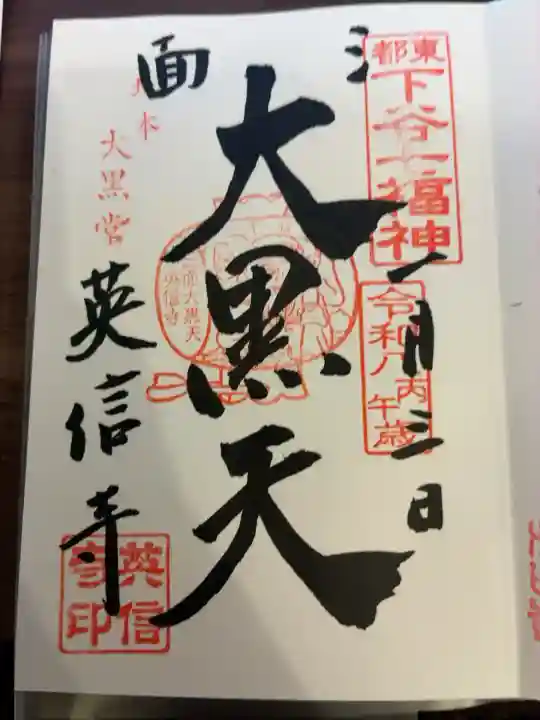 三面
東都
下谷七福神
令和八丙午歳
一月三日
大黒天
三面大黒天
英信寺
大黒堂
英信寺
英信寺印